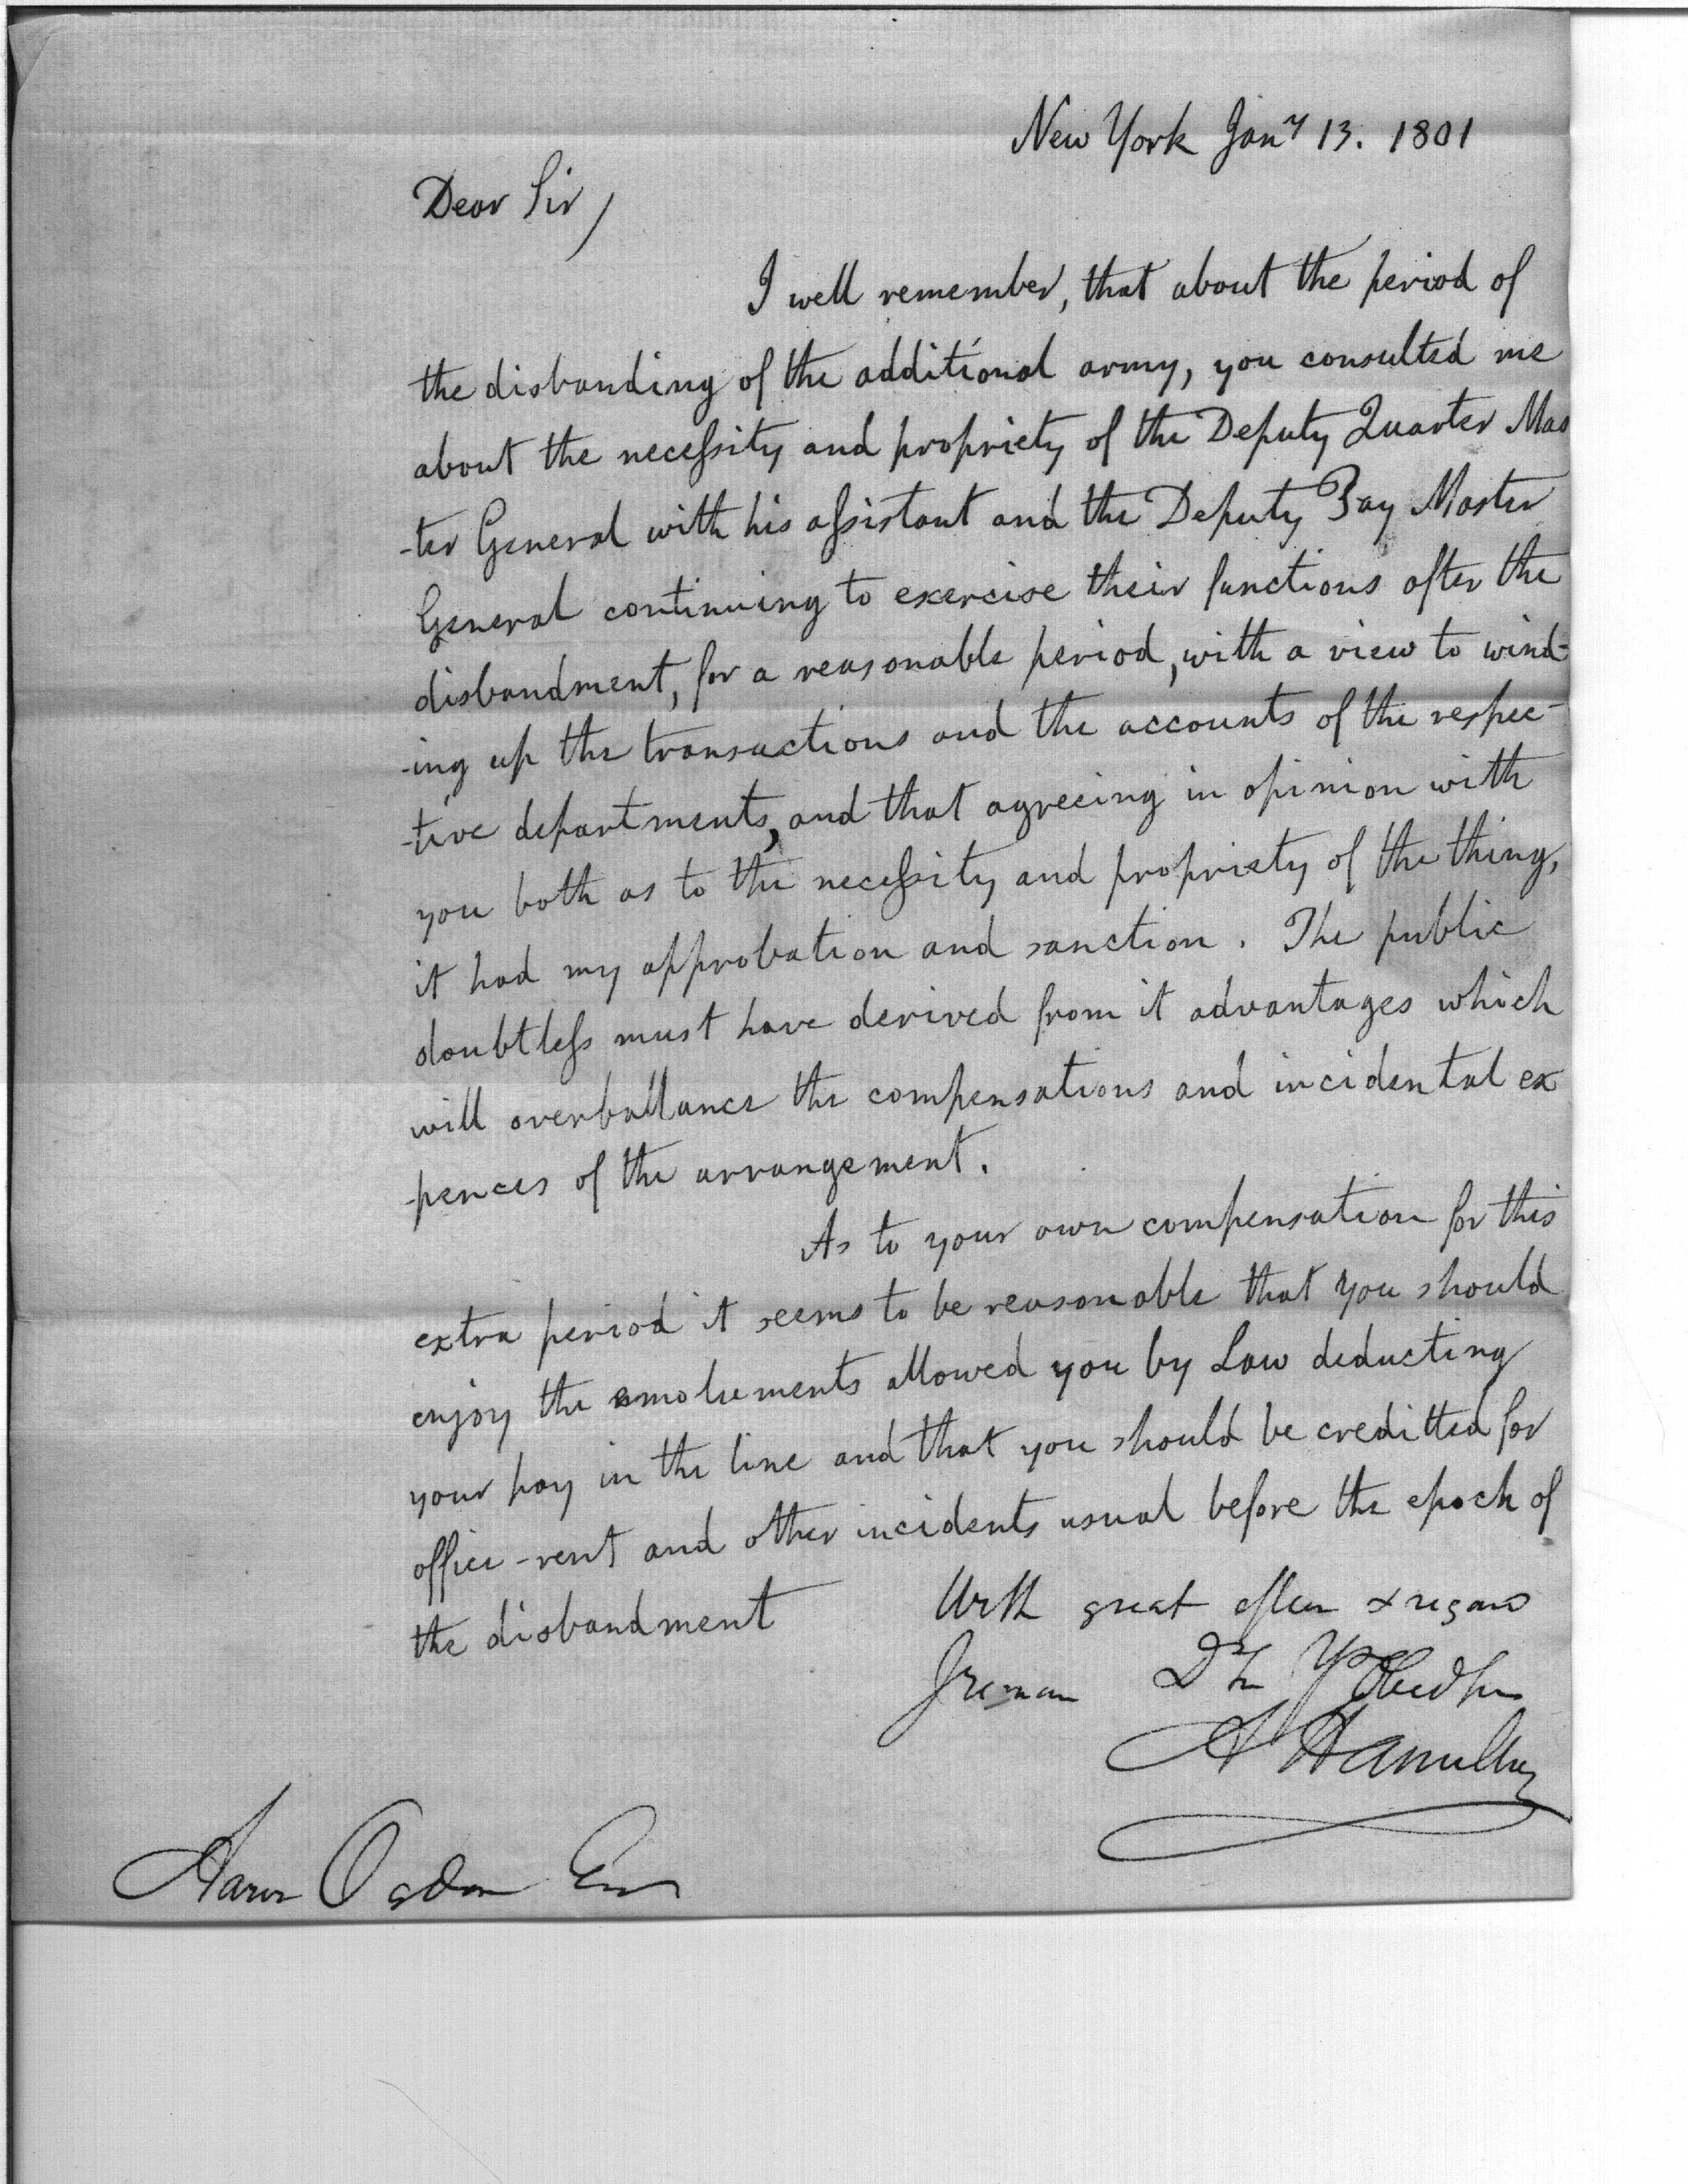 New York Jany 13. 1801
Dear Sir,
I well remember, that about the period of
the disbanding of the additional army, you consulted me
about the necessity and propriety of the Deputy Quarter Mas
-ter General with his assistant and the Deputy Pay Master
General continuing to exercise their functions after the
disbandment, for a reasonable period, with a view to wind-
-ing up the transactions and the accounts of the respec-
-tive departments, and that agreeing in opinion with
you both as to the necessity and propriety of the thing,
it had my approbation and sanction. The public
doubtless must have derived from it advantages which
will overballance the compensations and incidental ex
-pences of the arrangement.
As to your own compensation for this
extra period it seems to be reasonable that you should
enjoy the emoluments allowed you by Law deducting
your pay in the line and that you should be creditted for
office-rent and other incidents usual before the epoch of
the disbandment
With great esteem & regard
Dr Yr Obed
A Hamilton
Aaron Ogden Esq